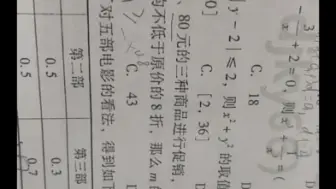 3/x + 2 = 0, 则 x + 1/x = (
C. 18
y − 2| ≤ 2, 则 x² + y² 的取值
0]
C. [2, 36]
、80元的三种商品进行促销,
均不低于原价的8折, 那么 m 的
C. 43
对五部电影的看法, 得到如下
第二部 第三部
0.5 0.3
0.5 0.7